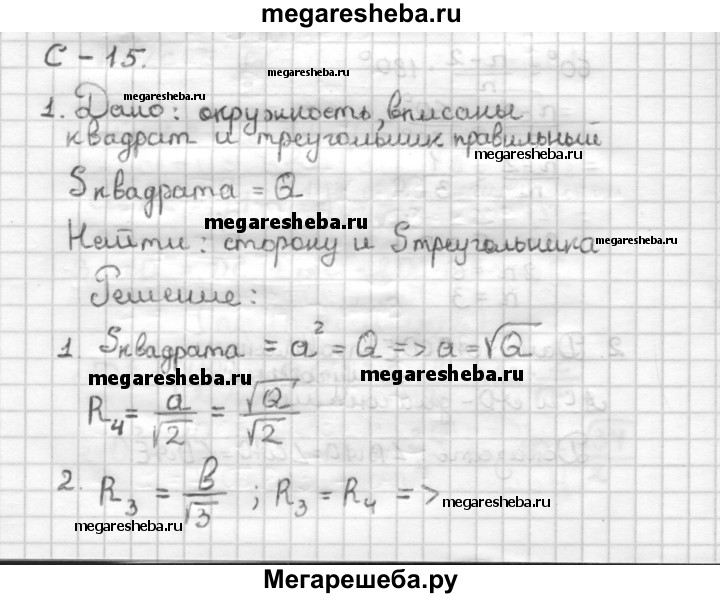 megaresheba.ru
С - 15.
megaresheba.ru
megaresheba.ru
1. Дано: окружность, вписаны
квадрат и треугольник правильный
megaresheba.ru
Sквадрата = Q
megaresheba.ru
Найти: сторону и Sтреугольника
megaresheba.ru
Решение:
1 Sквадрата = a² = Q => a = √Q
megaresheba.ru
megaresheba.ru
R₄ = a/√2 = √Q/√2
2. R₃ = b/√3 ; R₃ = R₄ =>
megaresheba.ru
megaresheba.ru
Мегарешеба.ру